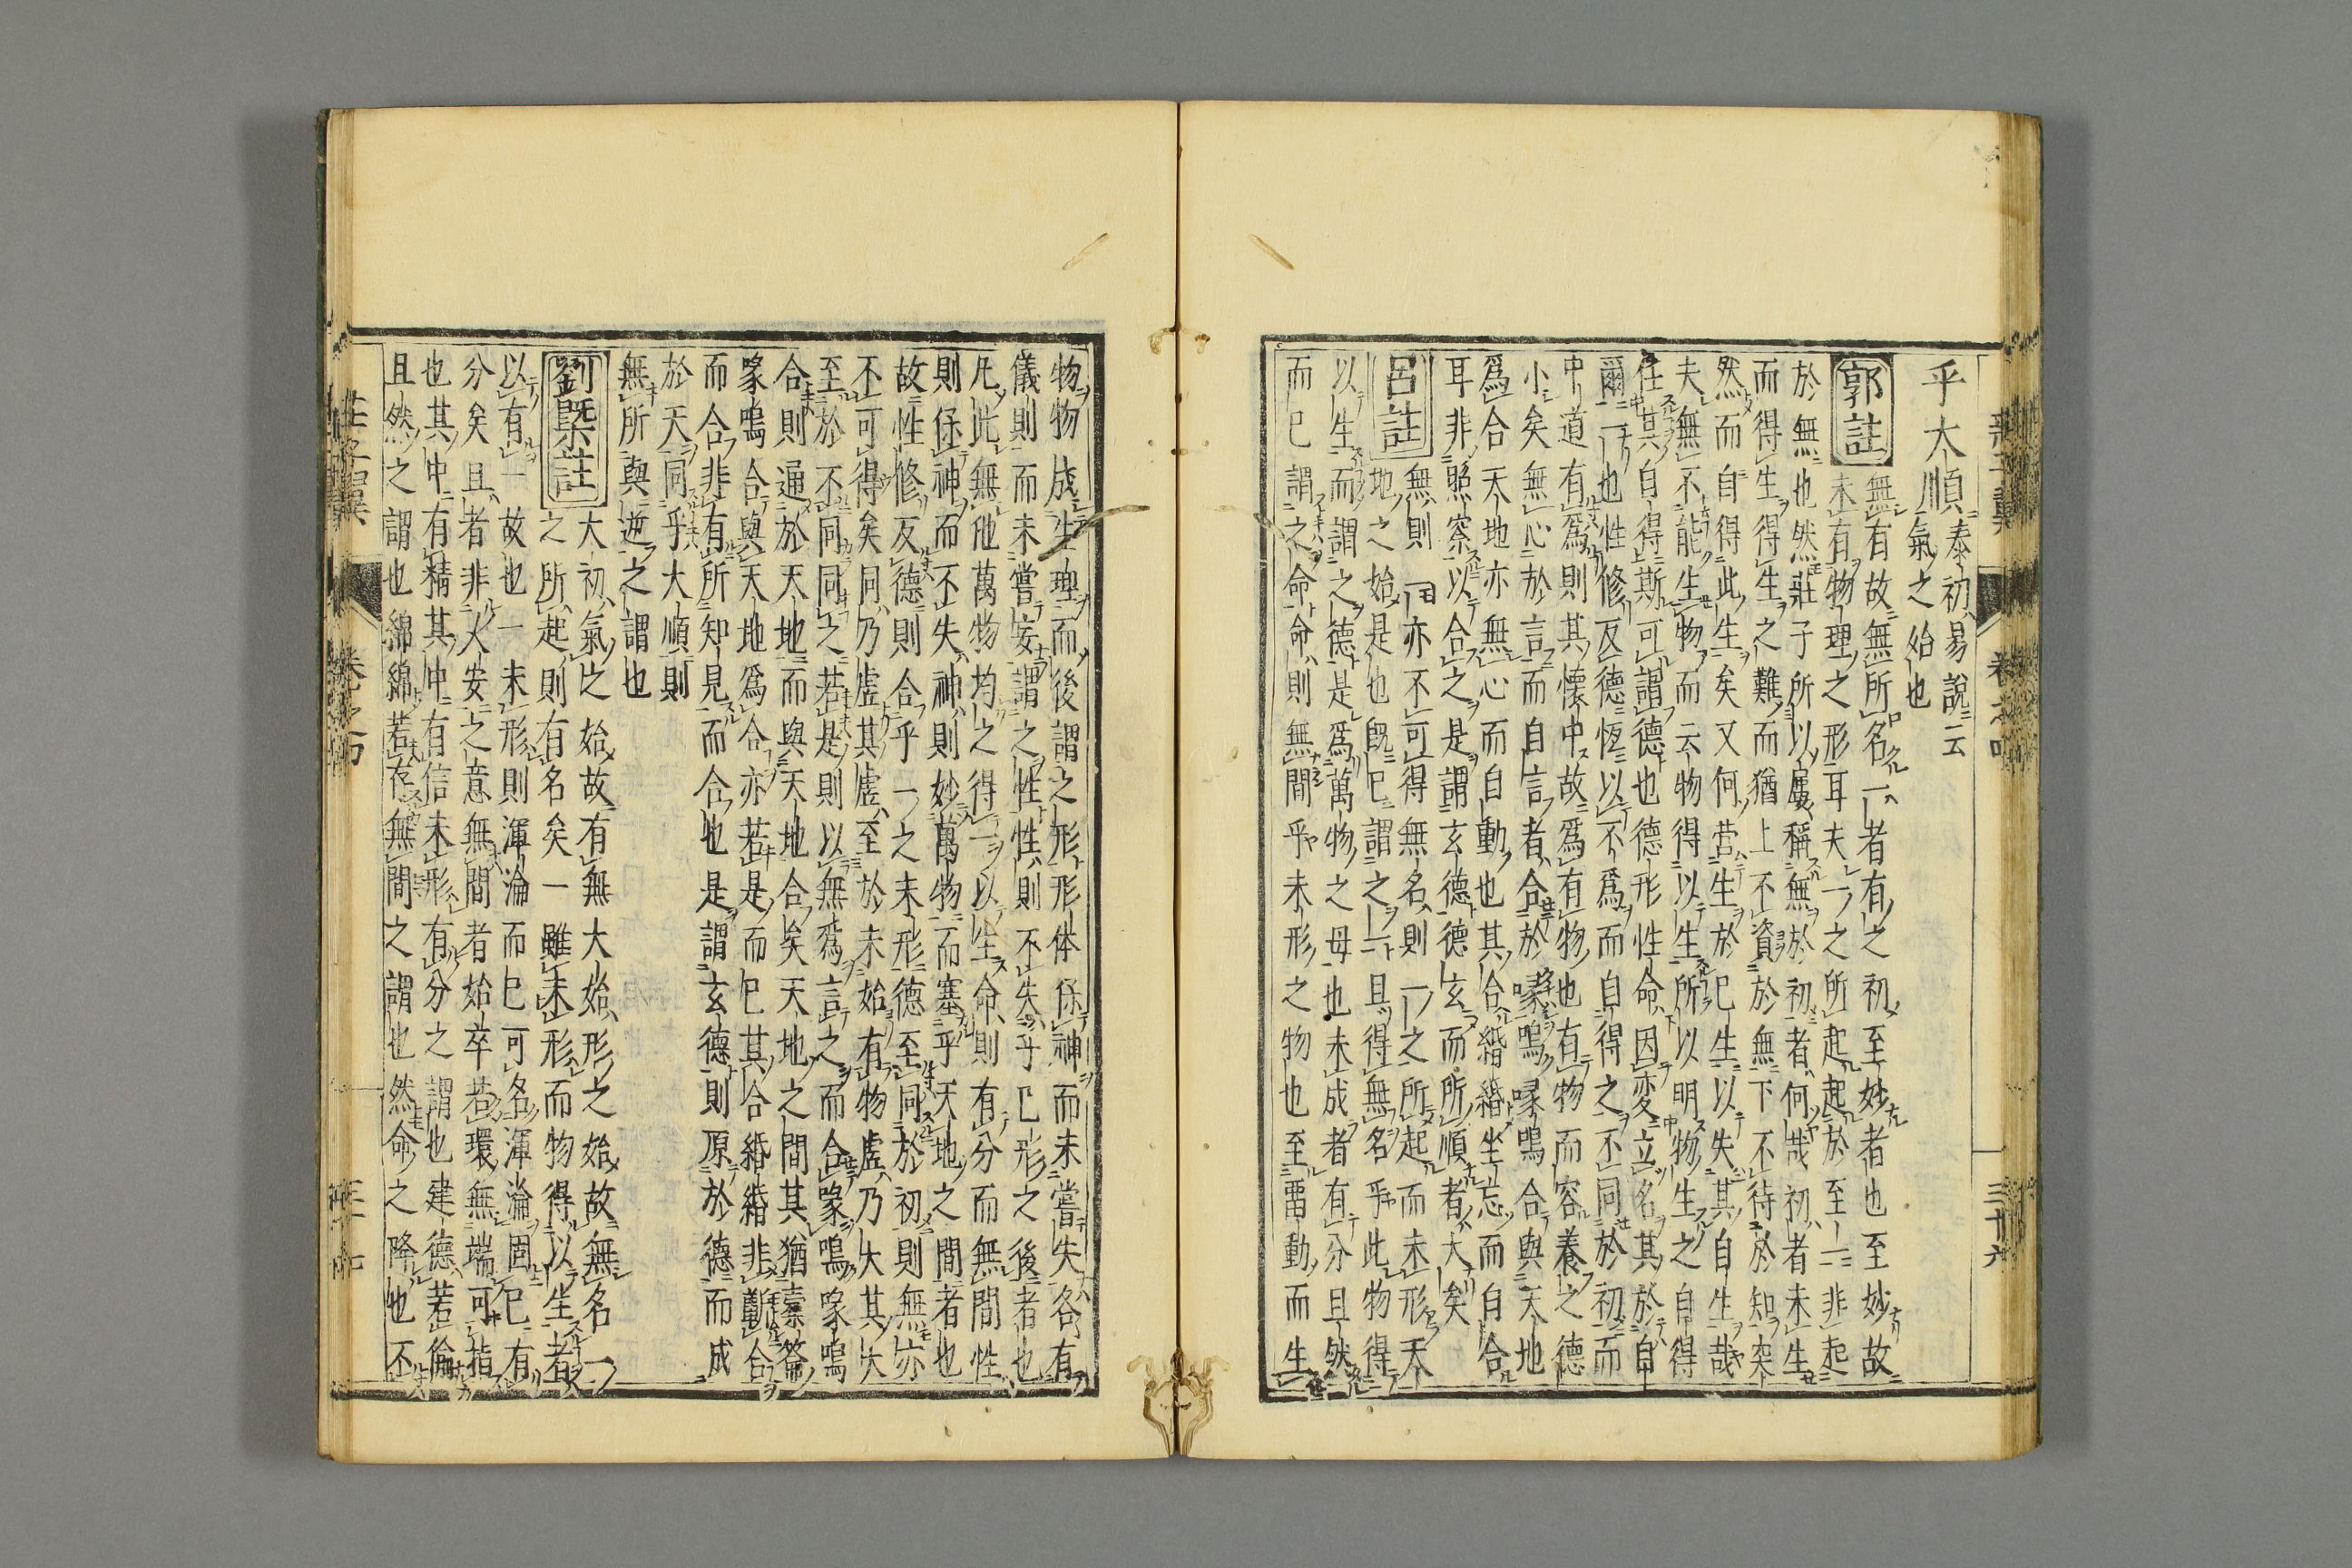 乎大順泰初易說云
氣之始也
郭註
無有故無所名一者有之初至妙者也至妙故
未有物理之形耳夫一之所起起於至一非起
於無也然莊子所以屢稱無於初者何哉初者未生
而得生得生之難而猶上不資於無下不待於知突
然而自得此生矣又何營生於已生以失其自生哉
夫無不能生物而云物得以生所以明物生之自得
任其自得斯可謂德也德形性命因変立名其於自
爾一也性修反德恆以不爲而自得之不同於初而
中道有爲則其懷中故爲有物也有物而容養之德
小矣無心於言而自言者合於喙鳴喙鳴合與天地
爲合天地亦無心而自動也其合緡緡坐忘而自合
耳非照察以合之是謂玄德德玄而所順者大矣
呂註
無則一亦不可得無名則一之所起而未形天
地之始是也旣已謂之一且得無名乎此物得
以生而謂之德是爲萬物之母也未成者有分且然
而已謂之命命則無間乎未形之物也至畱動而生
物物成生理而後謂之形形体保神而未嘗失各有
儀則而未嘗妄謂之性性則不失乎已形之後者也
凡此無他萬物均之得一以生命則有分而無間性
則保神而不失神則妙萬物而塞乎天地之間者也
故性修反德則合乎一之未形德至同於初則無亦
不可得矣同乃虛其虛至於未始有物虛乃大其大
至於不同同之若是則以無爲言之而合喙鳴喙鳴
合則通於天地而與天地合矣天地之間其猶橐籥
喙鳴合與天地爲合亦若是而已其合緡緡非斷合
而合非有所知見而合也是謂玄德則原於德而成
於天同乎大順則
無所與逆之謂也
劉槩註
大初氣之始故有無大始形之始故無名一
之所起則有名矣一雖未形而物得以生者
以有一故也一未形則渾淪而已可名渾淪固已有
分矣且者非大安之意無間者始卒若環無端可指
也其中有精其中有信未形有分之謂也建德若偷
且然之謂也綿綿若存無間之謂也然命之降也不